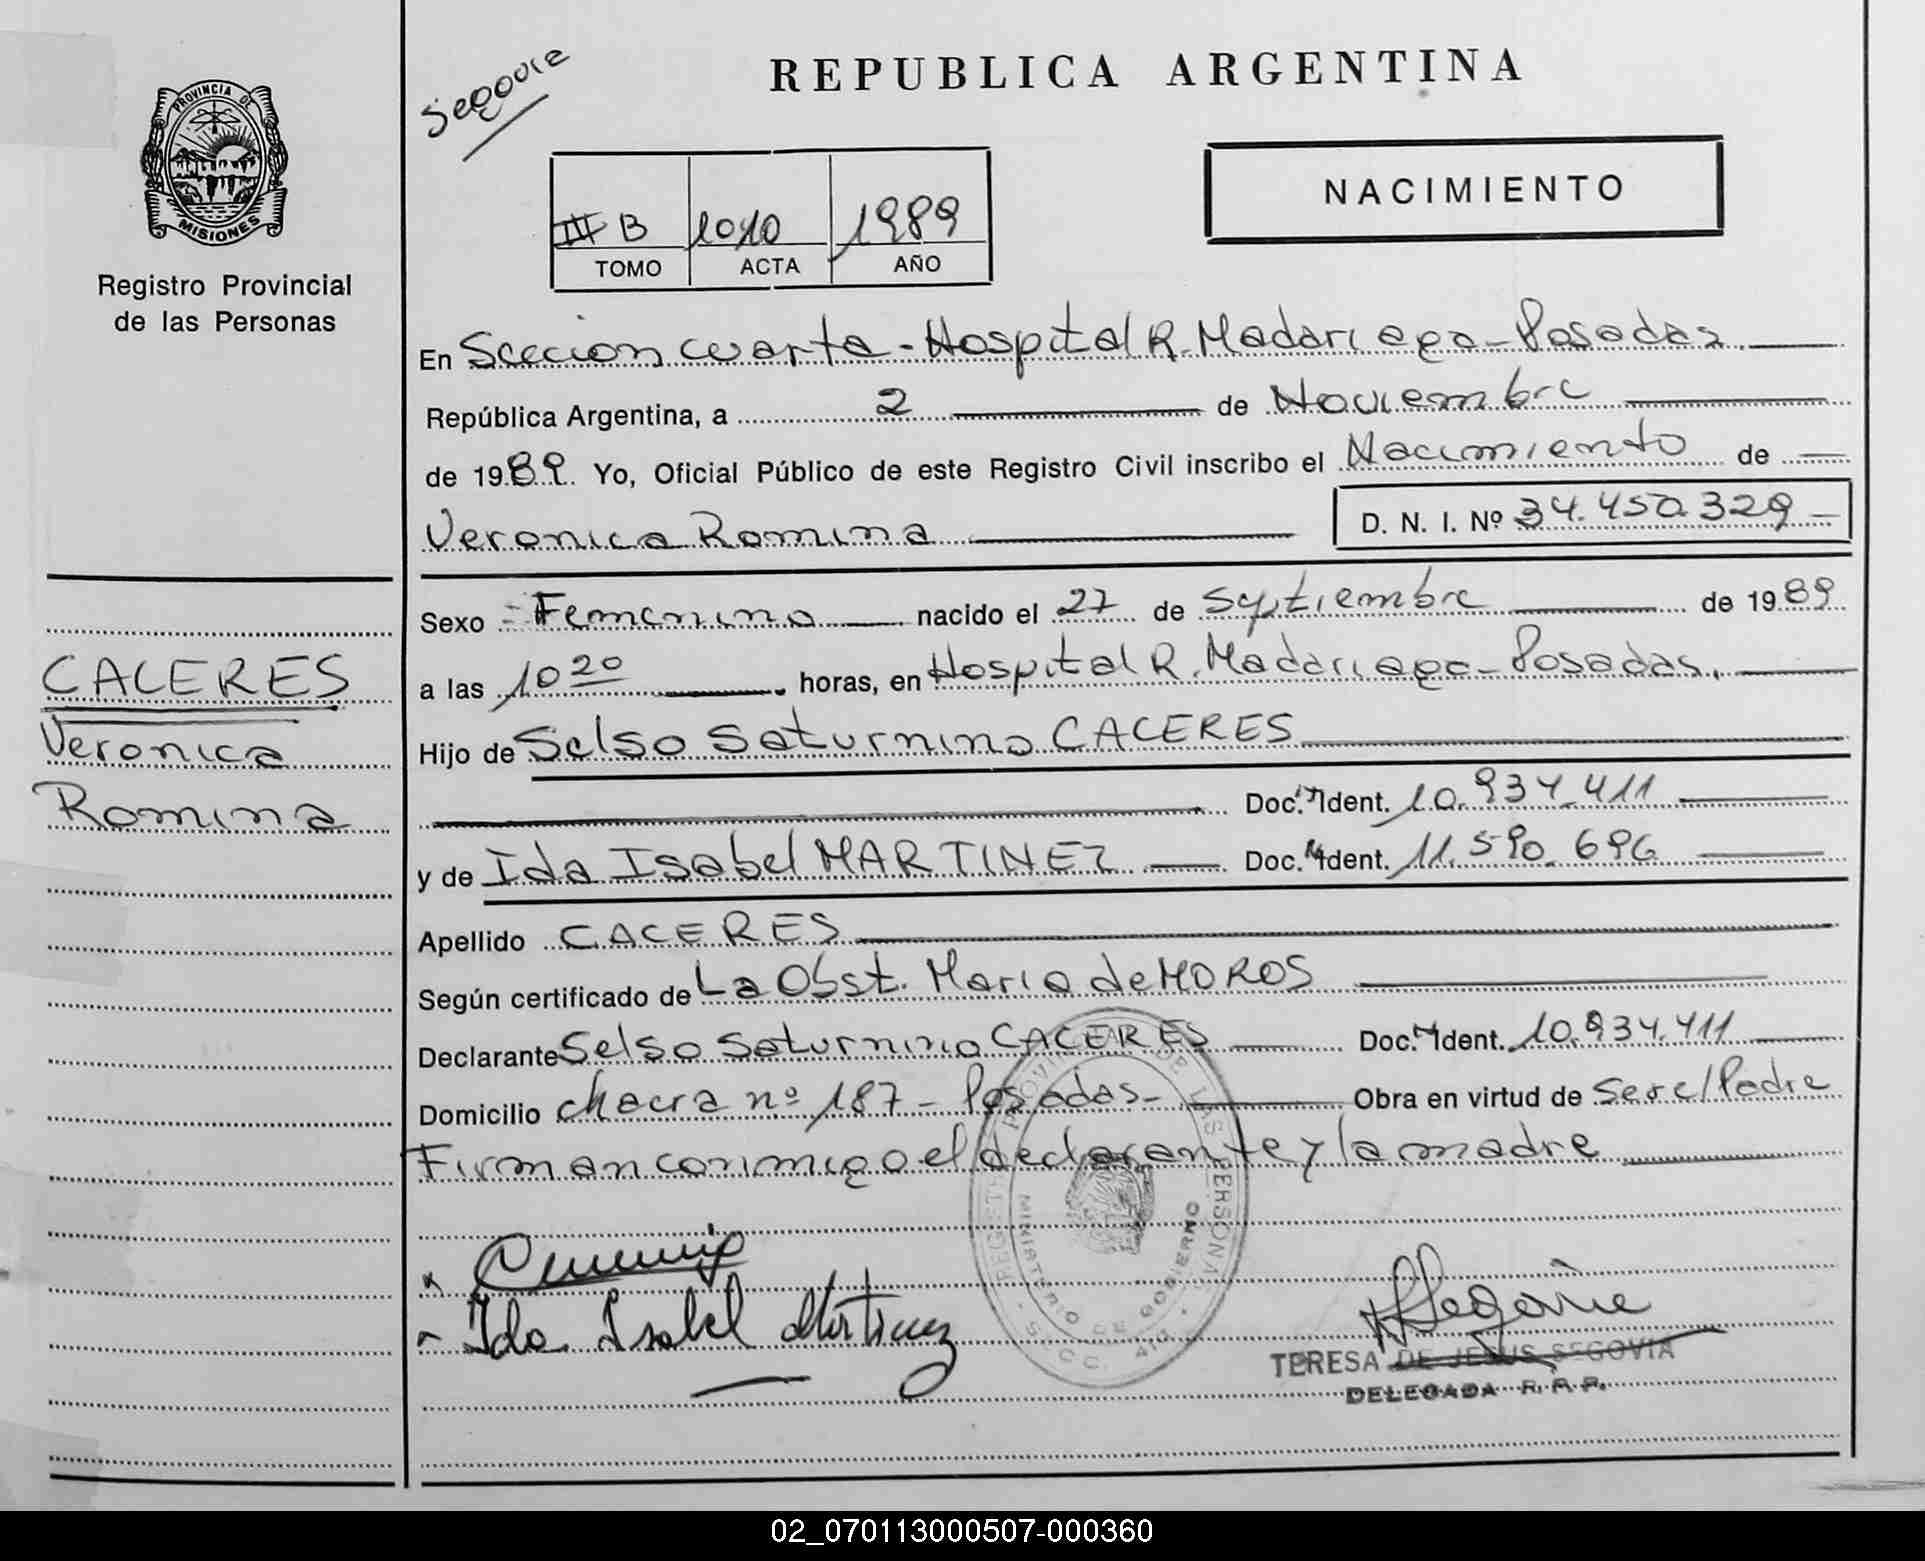 PROVINCIA DE
MISIONES
Registro Provincial
de las Personas
CACERES
Veronica
Romina
REPUBLICA ARGENTINA
NACIMIENTO
B 1010 1989
TOMO ACTA AÑO
En Seccion cuarta - Hospital R. Madariaga - Posadas.
República Argentina, a 2 de Noviembre
de 1989. Yo, Oficial Público de este Registro Civil inscribo el Nacimiento de
Veronica Romina D. N. I. Nº 34.450.329
Sexo Femenino nacido el 27 de Septiembre de 1989
a las 10 20 horas, en Hospital R. Madariaga - Posadas.
Hijo de Selso Saturnino CACERES
Doc. Ident. 10.934.411
y de Ida Isabel MARTINEZ Doc. Ident. 11.590.696
Apellido CACERES
Según certificado de La Obst. Maria de MOROS
Declarante Selso Saturnino CACERES Doc. Ident. 10.934.411
Domicilio chacra nº 187 - Posadas - Obra en virtud de ser el Padre
Firman conmigo el declarante y la madre
REGISTRO PROVINCIAL DE LAS PERSONAS
MINISTERIO DE GOBIERNO
Ida Isabel Martinez
TERESA DE JESUS SEGOVIA
DELEGADA R. P. P.
02_070113000507-000360